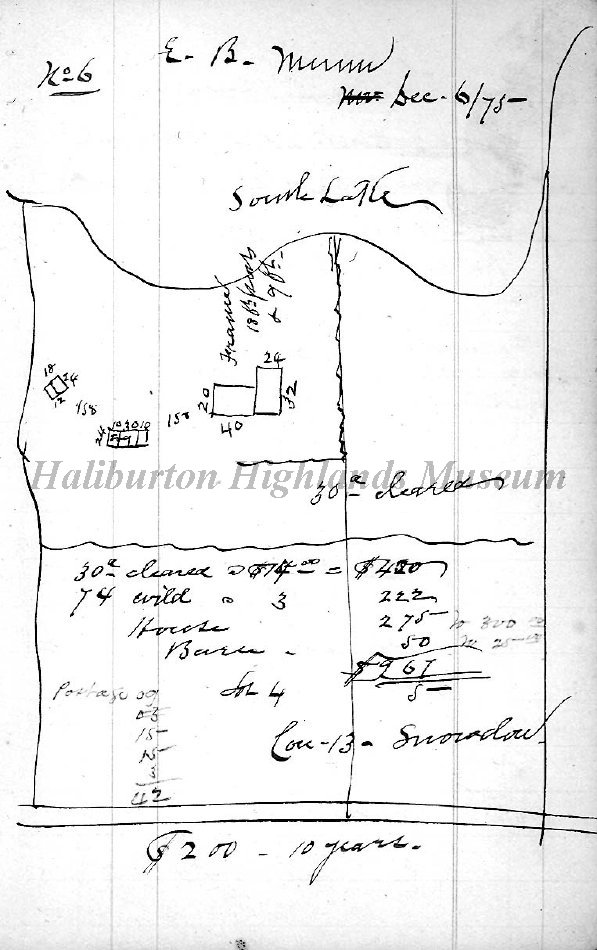 No 6
E. B. Munn
Dec. 6/75
South Lake
Frame
18 ft posts
& 9 ft.
24
32
20
40
18
24
12
158
158
24
10 30 10
Haliburton Highlands Museum
30a cleared
30a cleared @ $14.00 = $420
74 wild " 3 222
House 275 in 300 00
Barn - 50 in 25 00
$967
Postage 09 Lot 4 5
03
15
15
42
Con-13- Snowdon
$200 - 10 years.